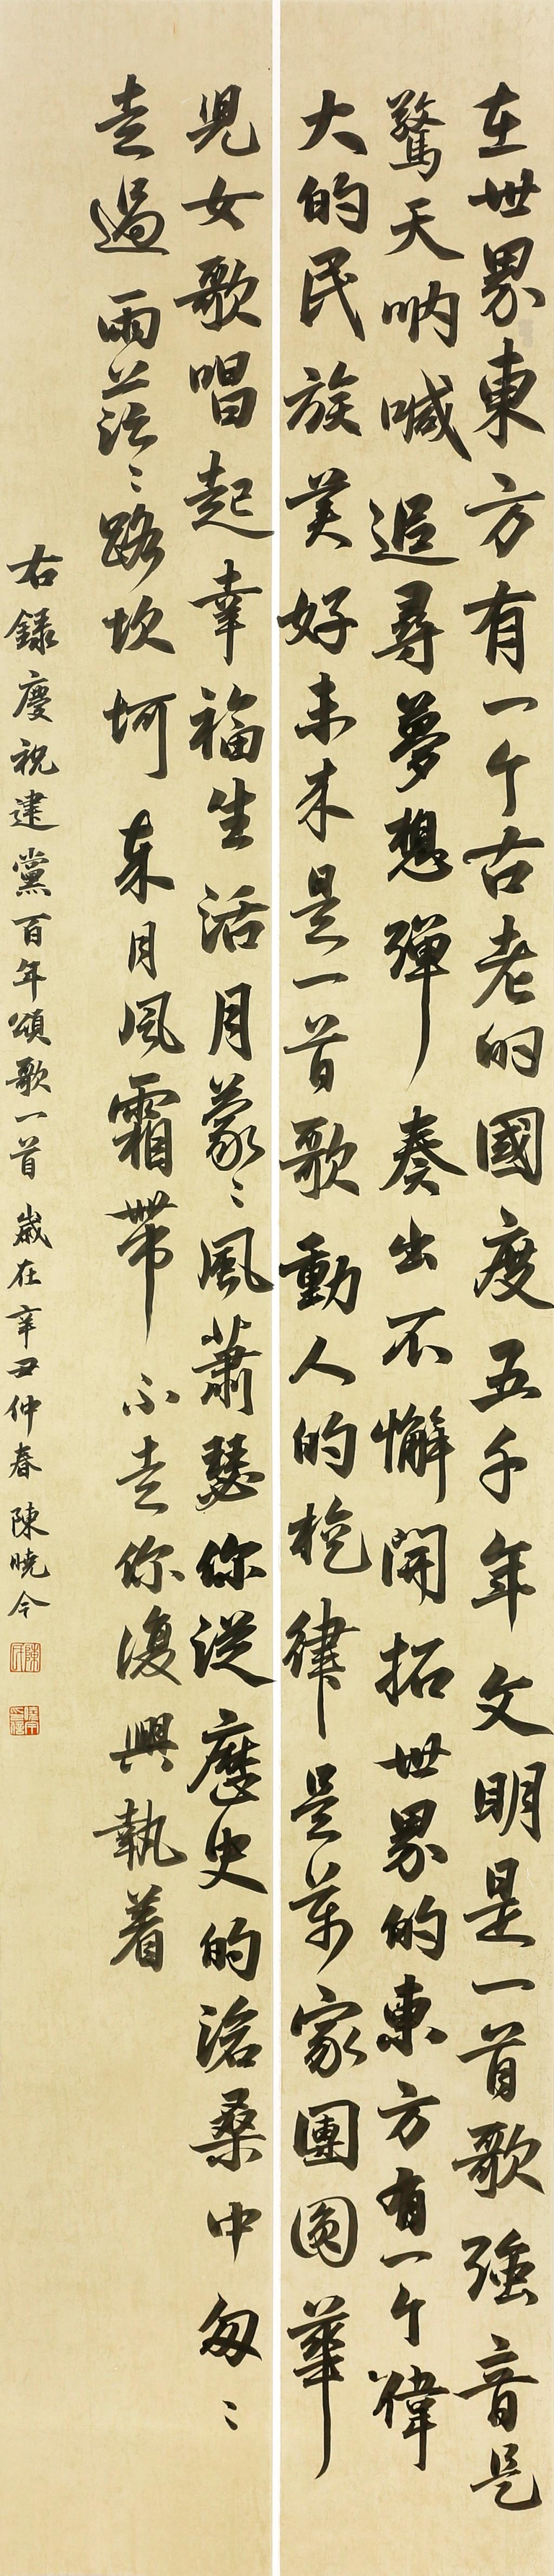 在世界東方有一个古老的國度五千年文明是一首歌強音是
驚天呐喊追尋夢想彈奏出不懈開拓世界的東方有一个偉
大的民族美好未来是一首歌動人的旋律是万家團圓華
児女歌唱起幸福生活月蒙〻風蕭瑟你從歷史的滄桑中匆〻
走過雨茫〻路坎坷東月風霜帶不走你復興執着
右録慶祝建黨百年頌歌一首歲在辛丑仲春陳曉令